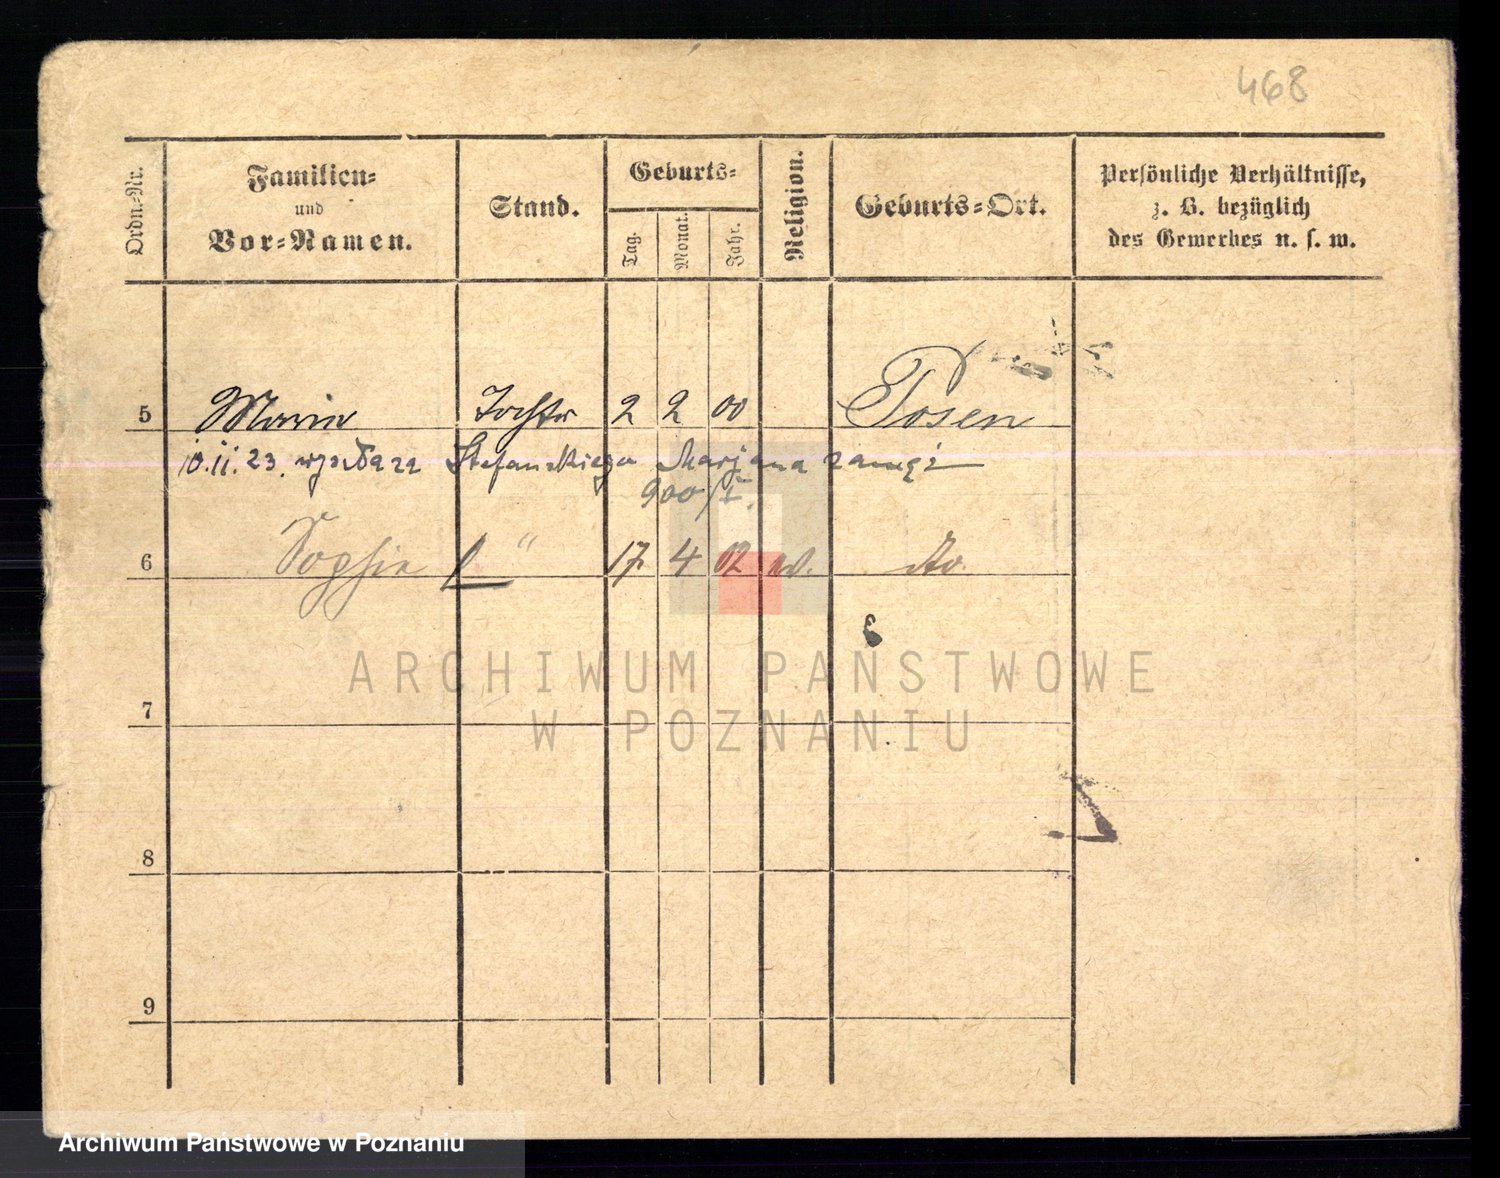 468
Ordn.-Nr.
Familien-
und
Vor-Namen.
Stand.
Geburts-
Tag.
Monat.
Jahr.
Religion.
Geburts-Ort.
Persönliche Verhältnisse,
z. B. bezüglich
des Gewerbes u. s. w.
5 Maria Tochter 2 2 00 Posen
10.11.23. wyszła za Stefanskiego Marjana zamęż
900/I.
6 Sophie " 17 4 02 do.
ARCHIWUM PAŃSTWOWE
W POZNANIU
7
8
9
Archiwum Państwowe w Poznaniu